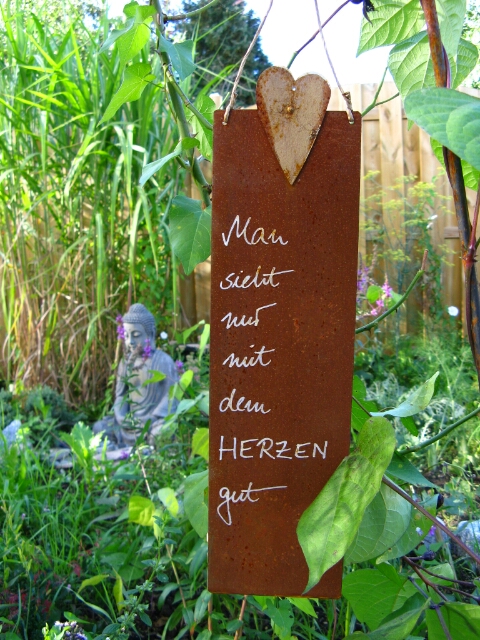 Man
sieht
nur
mit
dem
HERZEN
gut